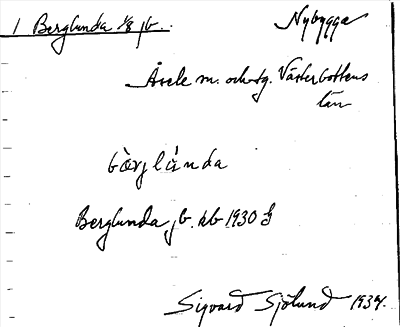 1 Berglunda 1/8 jb. Nybygge
Åsele m. och sg. Västerbottens
län
bàrjlúnda
Berglunda jb. kb 1930
Sigvard Sjölund 1934.